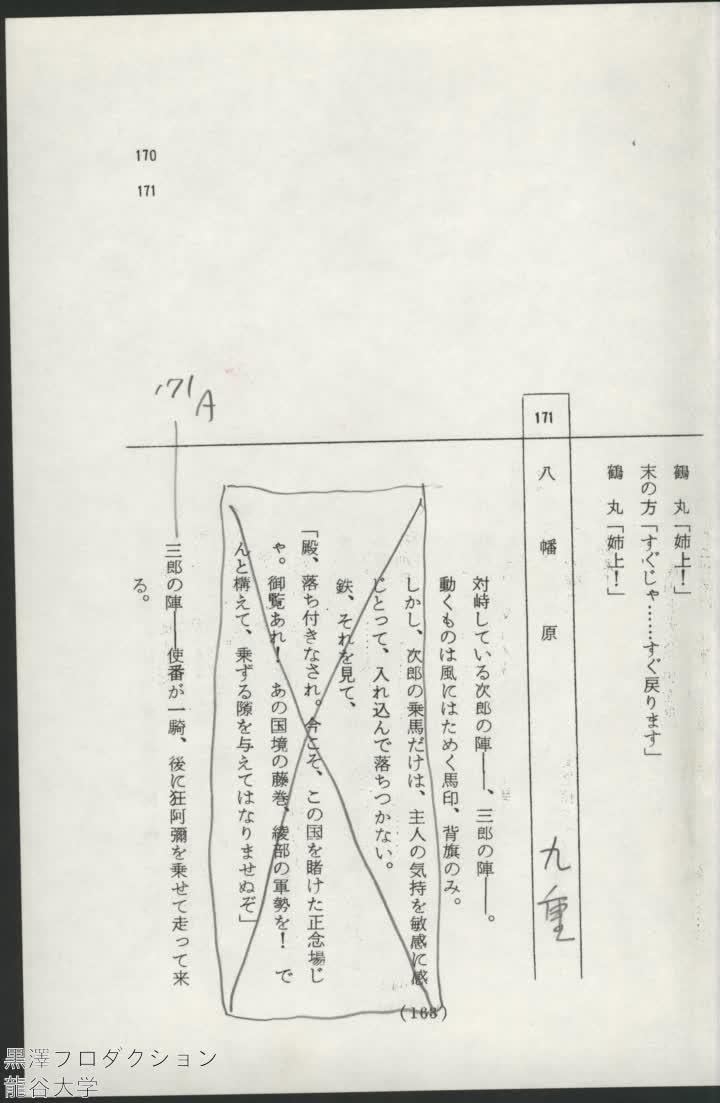 170
171
171A
鶴　丸「姉上！」
末の方「すぐじゃ……すぐ戻ります」
鶴　丸「姉上！」
171
八幡原
九重
対峙している次郎の陣――、三郎の陣――。
動くものは風にはためく馬印、背旗のみ。
しかし、次郎の乗馬だけは、主人の気持を敏感に感
じとって、入れ込んで落ちつかない。
鉄、それを見て、
「殿、落ち付きなされ。今こそ、この国を賭けた正念場じ
ゃ。御覧あれ！　あの国境の藤巻、綾部の軍勢を！　で
んと構えて、乗ずる隙を与えてはなりませぬぞ」
三郎の陣――使番が一騎、後に狂阿彌を乗せて走って来
る。
(163)
黒澤プロダクション
龍谷大学